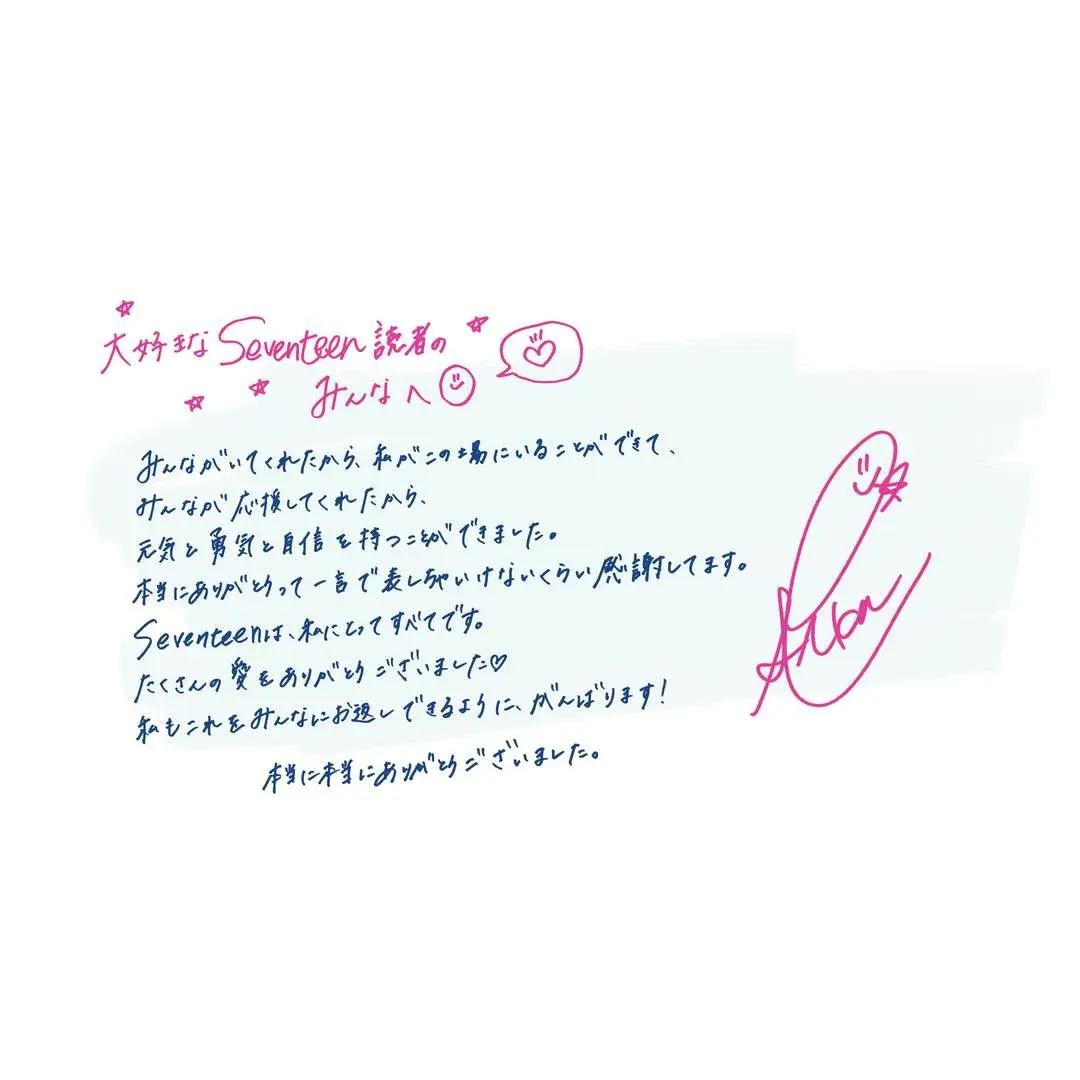 大好きなSeventeen読者の
みんなへ
みんながいてくれたから、私がこの場にいることができて、
みんなが応援してくれたから、
元気と勇気と自信を持つことができました。
本当にありがとうって一言で表しちゃいけないくらい感謝してます。
Seventeenは、私にとってすべてです。
たくさんの愛をありがとうございました♡
私もこれをみんなにお返しできるように、がんばります!
本当に本当にありがとうございました。